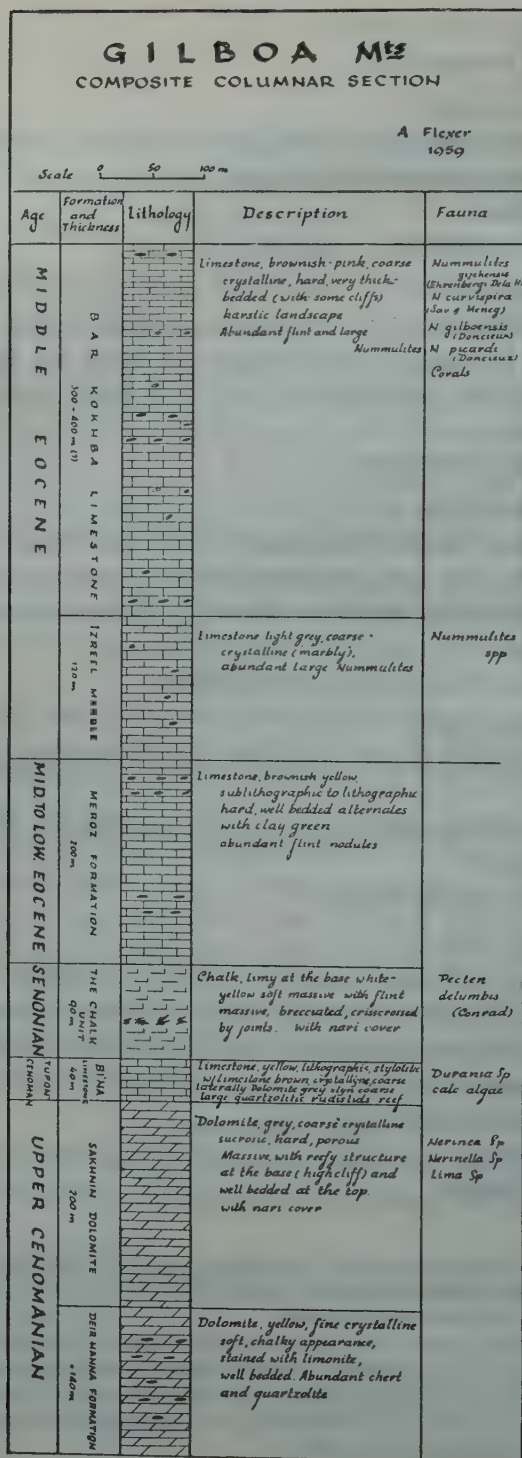 GILBOA Mts
COMPOSITE COLUMNAR SECTION
A Flexer
1959
Scale 0 50 100 m
Age
Formation
and
Thickness
Lithology
Description
Fauna
MIDDLE EOCENE
BAR KOKHBA LIMESTONE
300 - 400 m (?)
Limestone, brownish-pink, coarse
crystalline, hard, very thick-
bedded (with some cliffs)
karstic landscape
Abundant flint and large
Nummulites
Nummulites
gizehensis
(Ehrenbergi De la H
N curvispira
(Sav & Meneg)
N gilboensis
(Doncieux)
N picardi
(Doncieux)
Corals
IZREEL MARBLE
120 m
Limestone light grey, coarse -
crystalline (marbly),
abundant large Nummulites
Nummulites
spp
MID. TO LOW. EOCENE
MEROZ FORMATION
200 m
Limestone, brownish yellow,
sublithographic to lithographic
hard, well bedded alternates
with clay green
abundant flint nodules
SENONIAN
THE CHALK
UNIT
90 m
Chalk, limy at the base white-
yellow soft massive with flint
massive, brecciated, crisscrossed
by joints. with nari cover
Pecten
delumbis
(Conrad)
TURON
CENOMAN
BI'NA
LIMESTONE
40 m
Limestone, yellow, lithographic, stylolitic
w/limestone brown, crystalline, coarse
laterally Dolomite grey xlyn coarse
large quartzolitic rudistids reef
Durania Sp
calc algae
UPPER CENOMANIAN
SAKHNIN DOLOMITE
200 m
Dolomite, grey, coarse crystalline
sucrosic, hard, porous
Massive, with reefy structure
at the base (high cliff) and
well bedded at the top.
with nari cover
Nerinea Sp
Nerinella Sp
Lima Sp
DEIR HANNA FORMATION
+160 m
Dolomite, yellow, fine crystalline
soft, chalky appearance,
stained with limonite,
well bedded. Abundant chert
and quartzolite